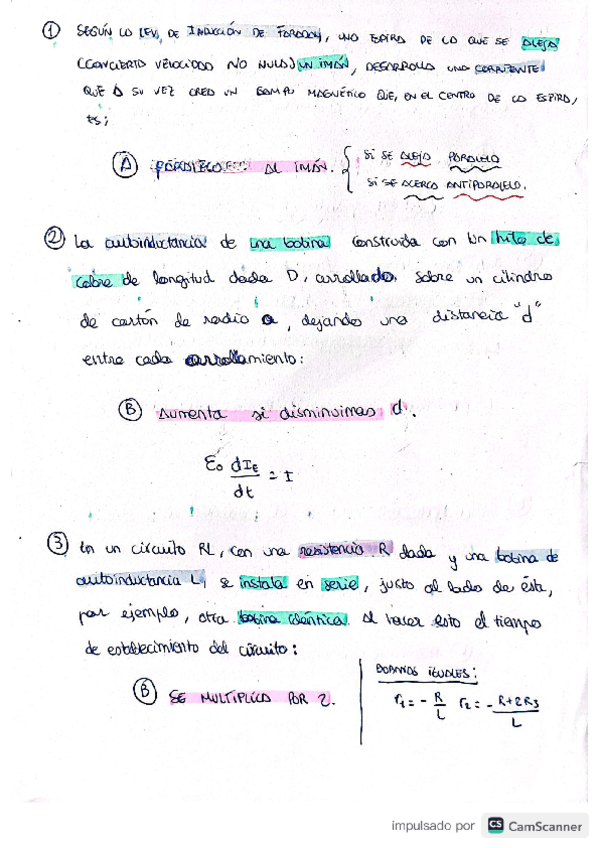 ① SEGÚN LA LEY, DE INDUCCIÓN DE FARADAY, UNA ESPIRA DE LA QUE SE ALEJA
(CON CIERTA VELOCIDAD NO NULA) UN IMÁN, DESARROLLA UNA CORRIENTE
QUE A SU VEZ CREA UN CAMPO MAGNÉTICO QUE, EN EL CENTRO DE LA ESPIRA,
ES:
Ⓐ PARALELO AL IMÁN. { SI SE ALEJA PARALELO
SI SE ACERCA ANTIPARALELO.
② La autoinductancia de una bobina construida con un hilo de
cobre de longitud dada D, arrollado sobre un cilindro
de cartón de radio a, dejando una distancia "d"
entre cada arrollamiento:
Ⓑ Aumenta si disminuimos d.
Ɛ₀ dI_E/dt = I
③ En un circuito RL, con una resistencia R dada y una bobina de
autoinductancia L, se instala en serie, justo al lado de ésta,
por ejemplo, otra bobina idéntica. Al hacer esto el tiempo
de establecimiento del circuito:
Ⓑ SE MULTIPLICA POR 2.
BOBINAS IGUALES:
r₁ = - R/L r₂ = - R+2R₃/L
impulsado por CS CamScanner